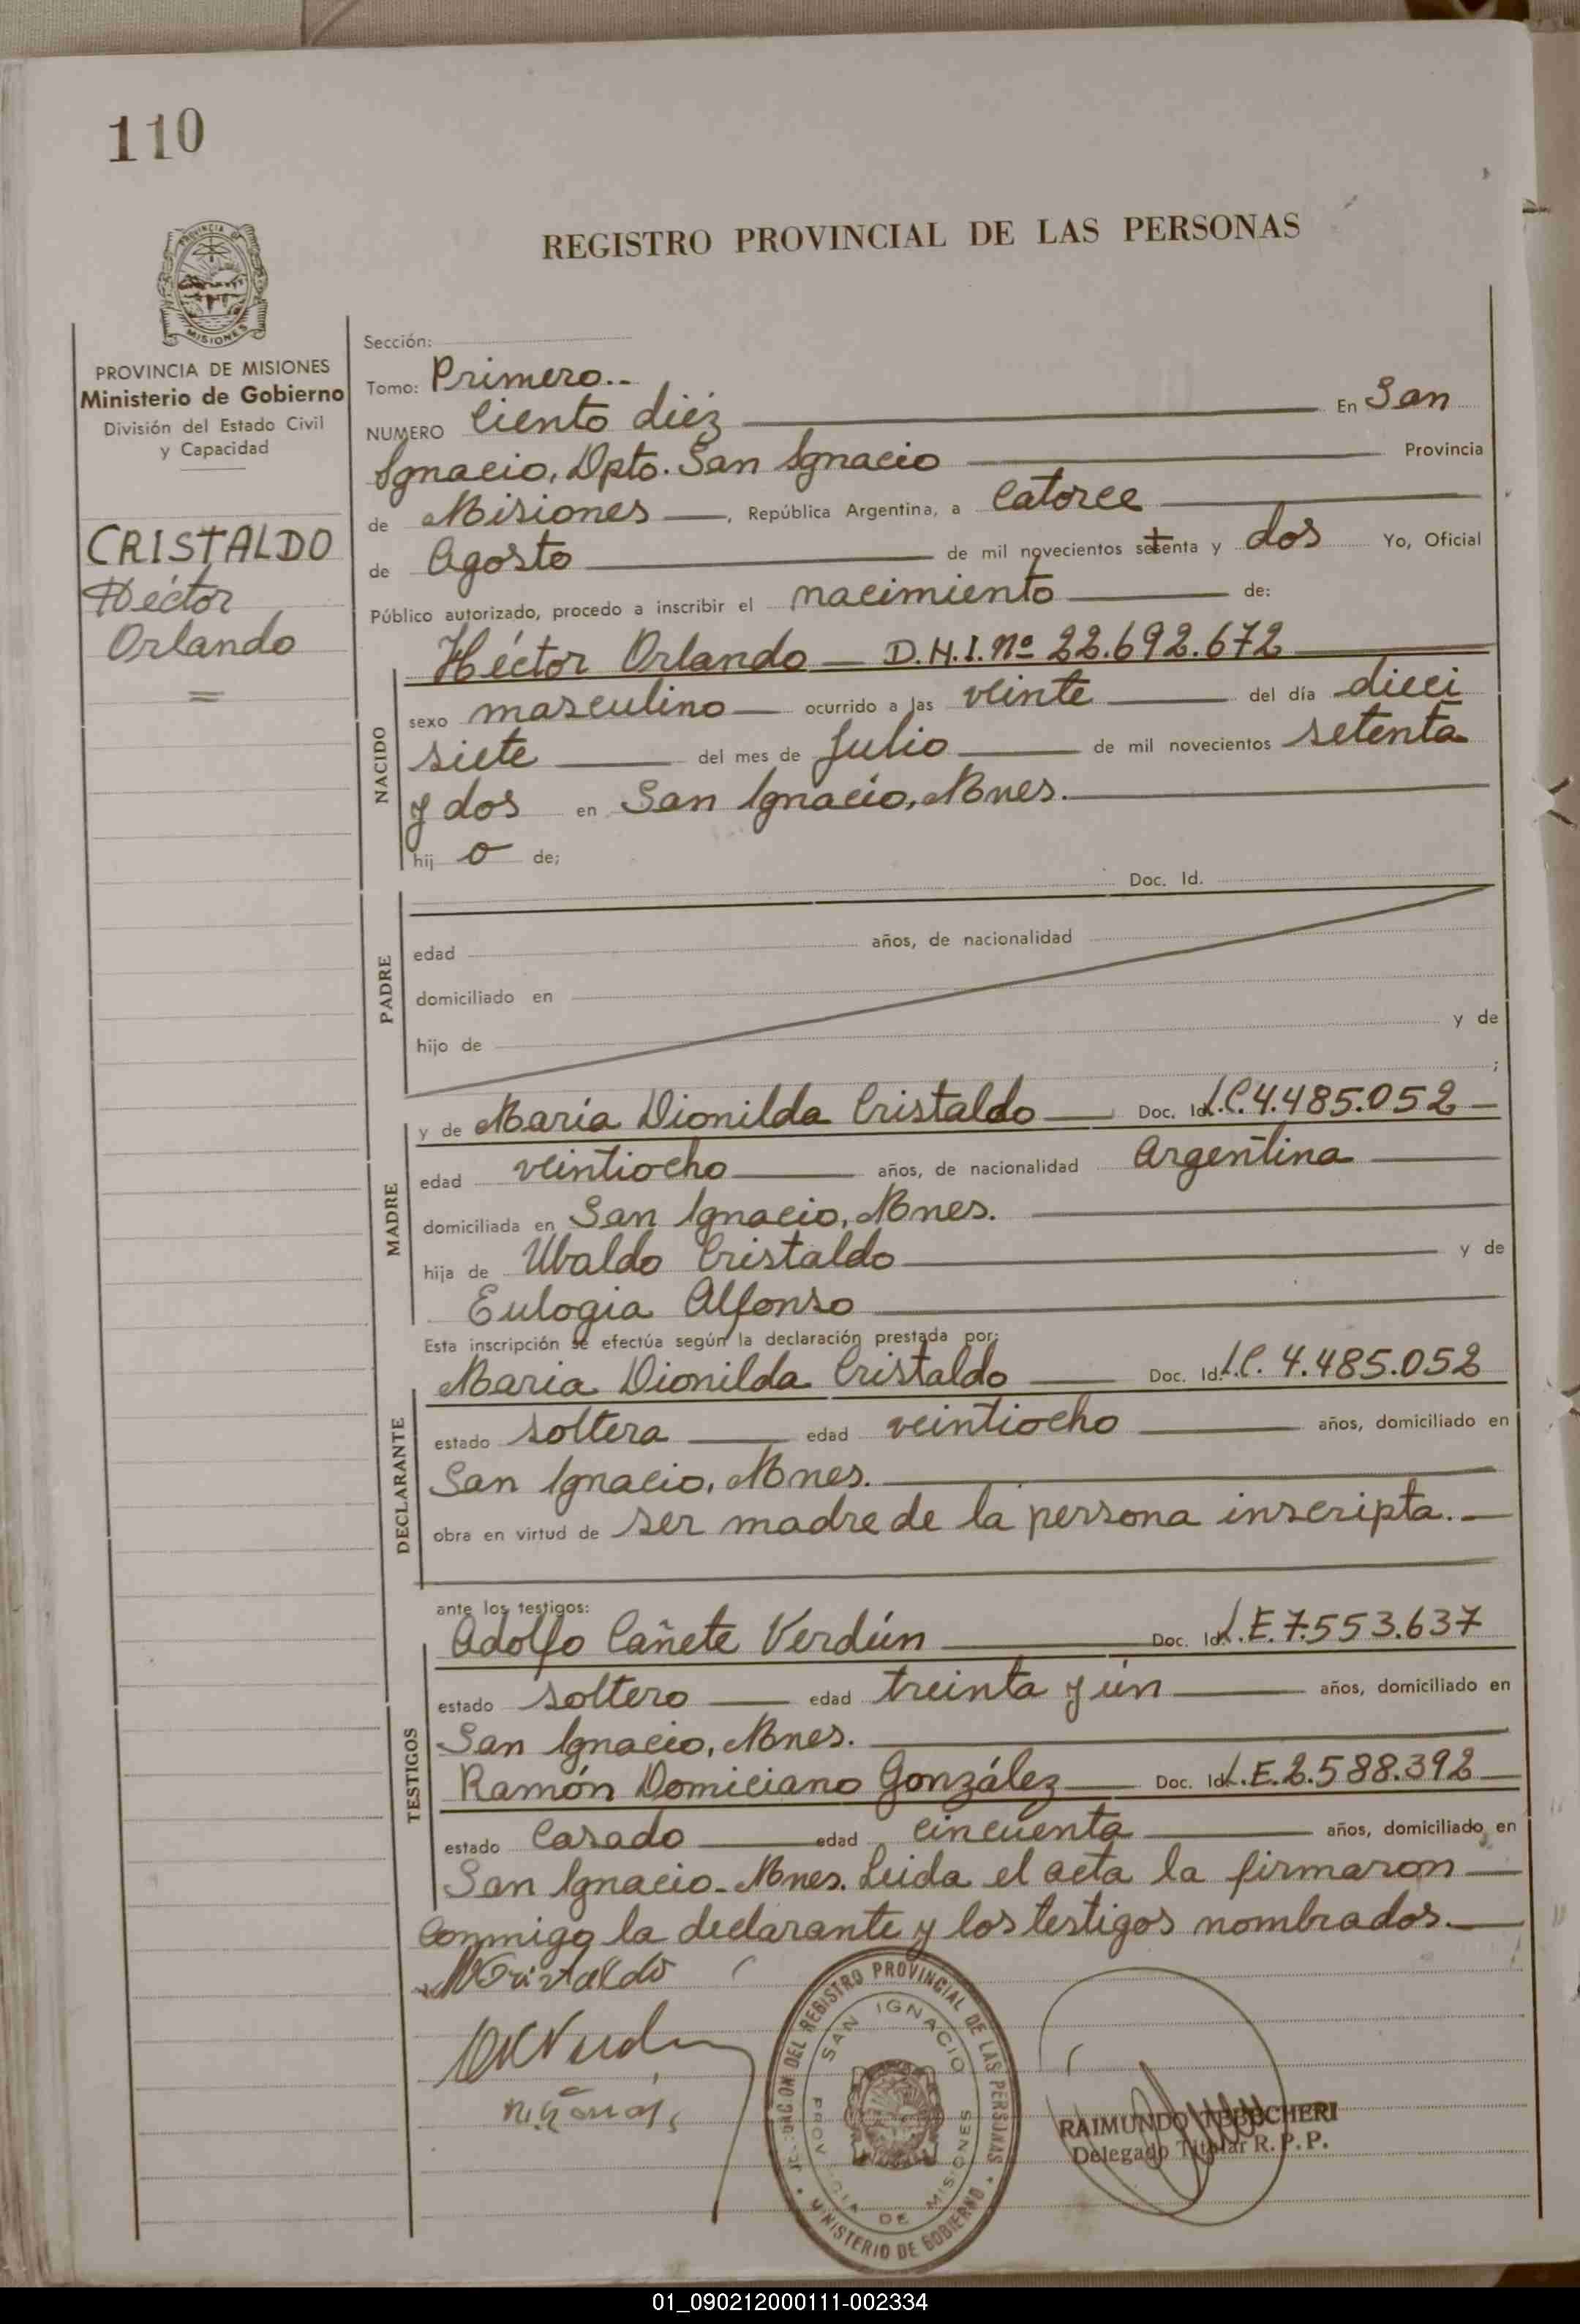 110
REGISTRO PROVINCIAL DE LAS PERSONAS
PROVINCIA DE MISIONES
MISIONES
PROVINCIA DE MISIONES
Ministerio de Gobierno
División del Estado Civil
y Capacidad
CRISTALDO
Héctor
Orlando
Sección:
Tomo: Primero..
NUMERO Ciento diéz En San
Ignacio, Dpto. San Ignacio Provincia
de Misiones, República Argentina, a Catorce
de Agosto de mil novecientos setenta y dos Yo, Oficial
Público autorizado, procedo a inscribir el nacimiento de:
Héctor Orlando — D.N.I. Nº 22.692.672
NACIDO
sexo masculino ocurrido a las veinte del día dieci
siete del mes de Julio de mil novecientos setenta
y dos en San Ignacio, Mnes.
hij o de;
PADRE
Doc. Id.
edad años, de nacionalidad
domiciliado en
hijo de y de
;
MADRE
y de María Dionilda Cristaldo Doc. Id. L.C. 4.485.052
edad veintiocho años, de nacionalidad Argentina
domiciliada en San Ignacio, Mnes.
hija de Ubaldo Cristaldo y de
Eulogia Alfonso
Esta inscripción se efectúa según la declaración prestada por:
DECLARANTE
Maria Dionilda Cristaldo Doc. Id. L.C. 4.485.052
estado soltera edad veintiocho años, domiciliado en
San Ignacio, Mnes.
obra en virtud de ser madre de la persona inscripta.
ante los testigos:
TESTIGOS
Adolfo Cañete Verdún Doc. Id. L.E. 7.553.637
estado soltero edad treinta y ún años, domiciliado en
San Ignacio, Mnes.
Ramón Domiciano González Doc. Id. L.E. 2.588.392
estado Casado edad cincuenta años, domiciliado en
San Ignacio - Mnes. Leida el acta la firmaron
conmigo la declarante y los testigos nombrados.
Cristaldo
DEL REGISTRO PROVINCIAL DE LAS PERSONAS
SAN IGNACIO
PROVINCIA DE MISIONES
MINISTERIO DE GOBIERNO
RAIMUNDO
Delegado Titular R. P. P.
01_090212000111-002334